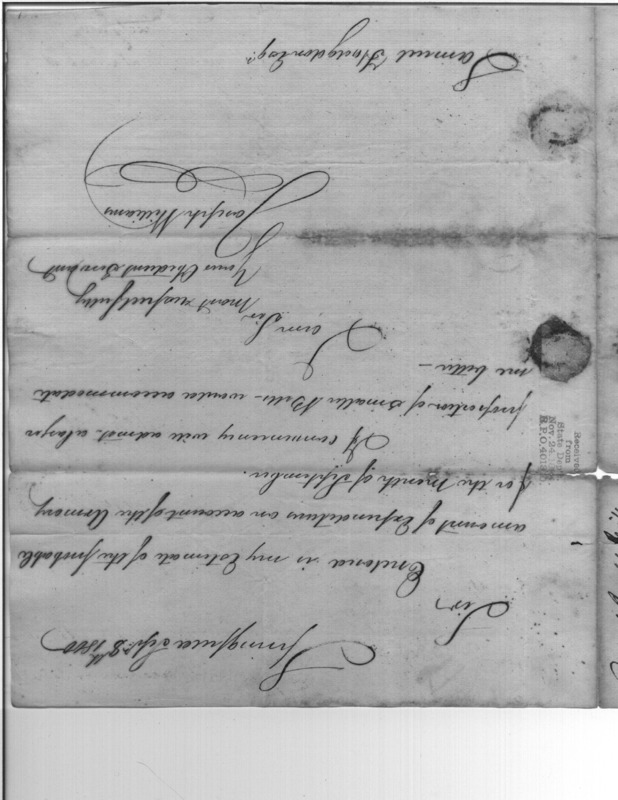 Springfield Sepr. 8th 1800
Sir
Enclosed is my Estimate of the probable
amount of Expenditures on account of the Armory
for the Month of September.
If conveniency will admit, a larger
proportion of smaller Bills - would accommodate
me better -
I am
Sir
most respectfully
Your Obedient Servant
Joseph Williams
Samuel Hodgdon Esqr.
Received
from
State De
Nov. 24,
R.P.O.